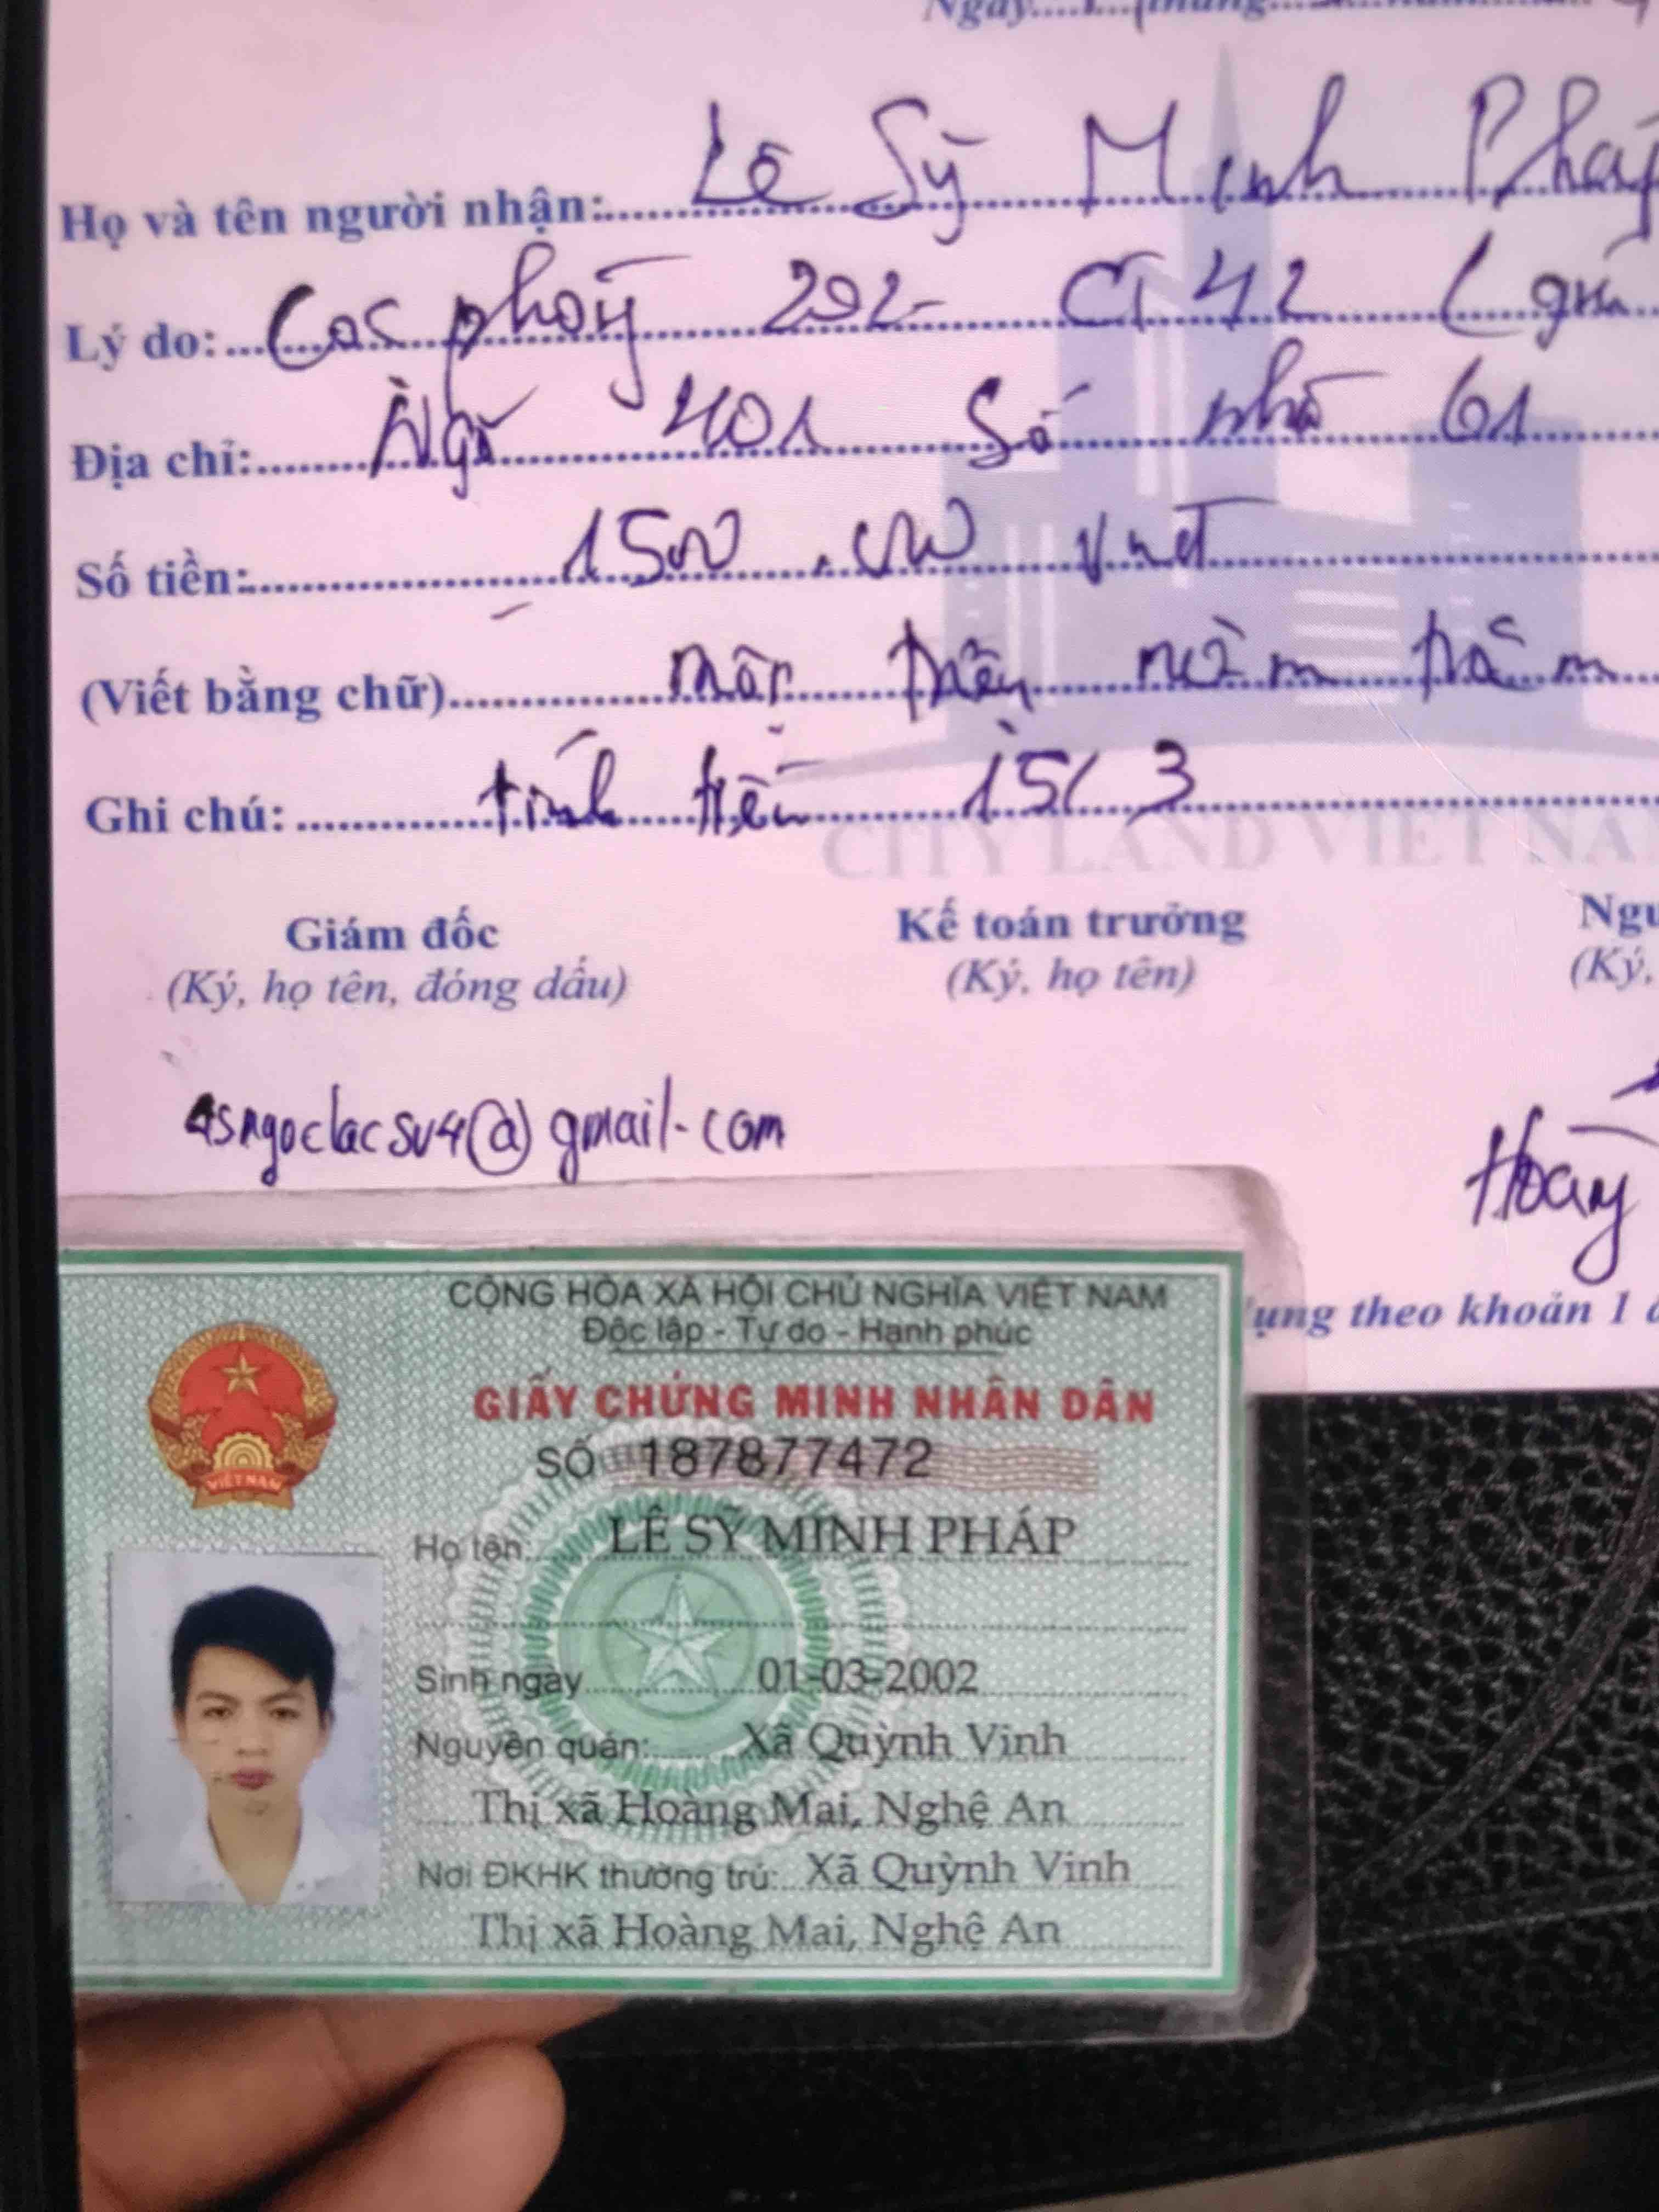 Ngày
Họ và tên người nhận: Lê Sỹ Minh Pháp
Lý do: Cọc phòng 202 CT42
Địa chỉ: Ngõ 401 Số nhà 61
Số tiền: 1500.000 vnđ
(Viết bằng chữ) Một triệu năm trăm
Ghi chú: tính tiền 15/3
CITY LAND VIET NA
Giám đốc Kế toán trưởng
(Ký, họ tên, đóng dấu) (Ký, họ tên) (Ký,
4sngoclacsv4@gmail.com
Hoàng
theo khoản 1
CỘNG HÒA XÃ HỘI CHỦ NGHĨA VIỆT NAM
Độc lập - Tự do - Hạnh phúc
GIẤY CHỨNG MINH NHÂN DÂN
SỐ 187877472
VIỆT NAM
Họ tên LÊ SỸ MINH PHÁP
Sinh ngày 01-03-2002
Nguyên quán: Xã Quỳnh Vinh
Thị xã Hoàng Mai, Nghệ An
Nơi ĐKHK thường trú: Xã Quỳnh Vinh
Thị xã Hoàng Mai, Nghệ An